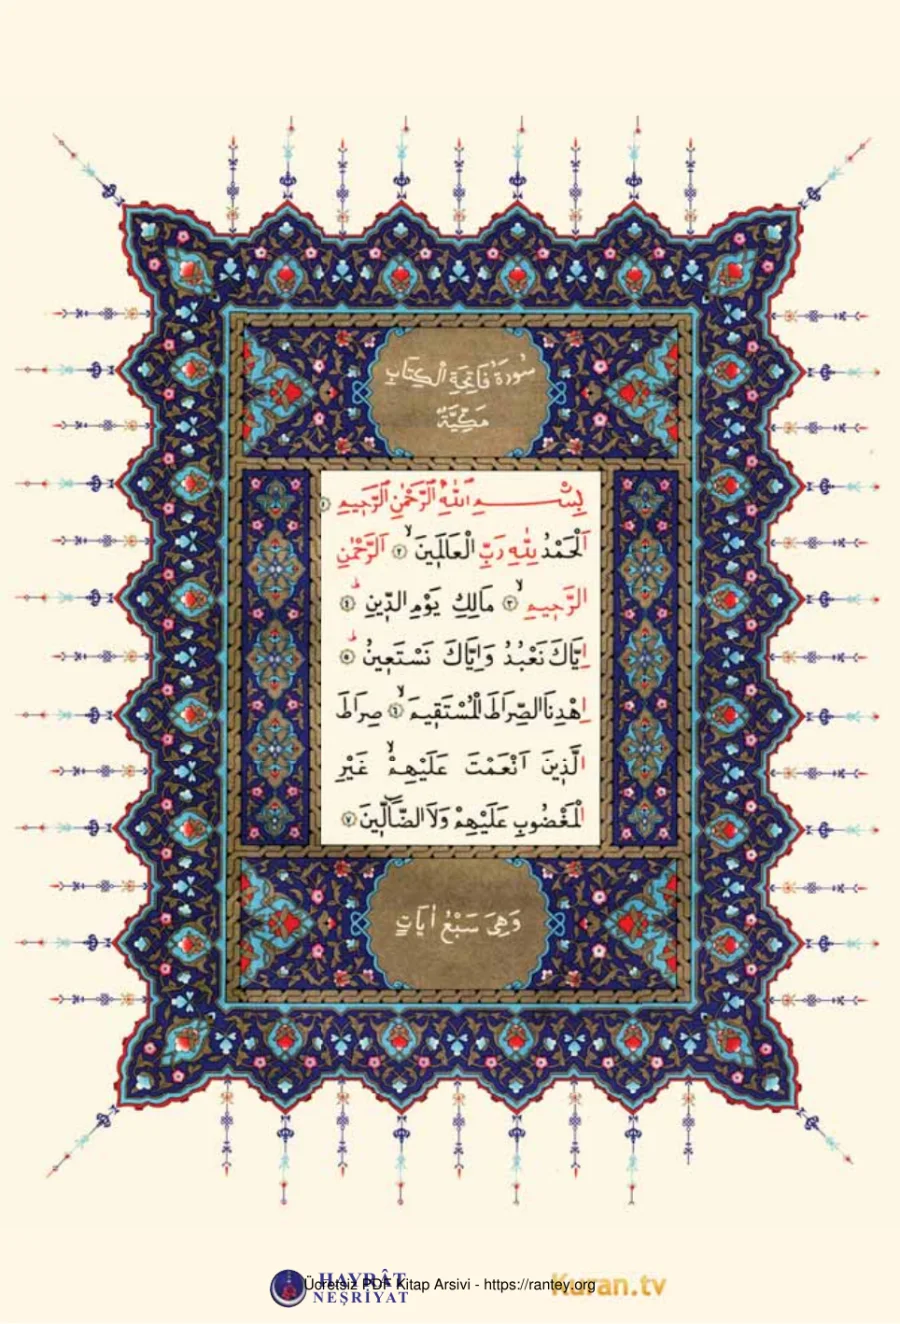 سُورَةُ فَاتِحَةِ الْكِتَابِ
مَكِّيَّةٌ
بِسْــــمِ اللّٰهِ الرَّحْمٰنِ الرَّحٖيمِ ﴿١﴾
اَلْحَمْدُ لِلّٰهِ رَبِّ الْعَالَمٖينَۙ ﴿٢﴾ اَلرَّحْمٰنِ
الرَّحٖيمِۙ ﴿٣﴾ مَالِكِ يَوْمِ الدّٖينِۜ ﴿٤﴾
اِيَّاكَ نَعْبُدُ وَاِيَّاكَ نَسْتَعٖينُۜ ﴿٥﴾
اِهْدِنَا الصِّرَاطَ الْمُسْتَقٖيمَۙ ﴿٦﴾ صِرَاطَ
الَّذٖينَ اَنْعَمْتَ عَلَيْهِمْۙ غَيْرِ
الْمَغْضُوبِ عَلَيْهِمْ وَلَا الضَّٓالّٖينَ ﴿٧﴾
وَهِيَ سَبْعُ اٰيَاتٍ
HAYRÂT
NEŞRİYAT
Ücretsiz PDF Kitap Arsivi - https://rantey.org
Kuran.tv